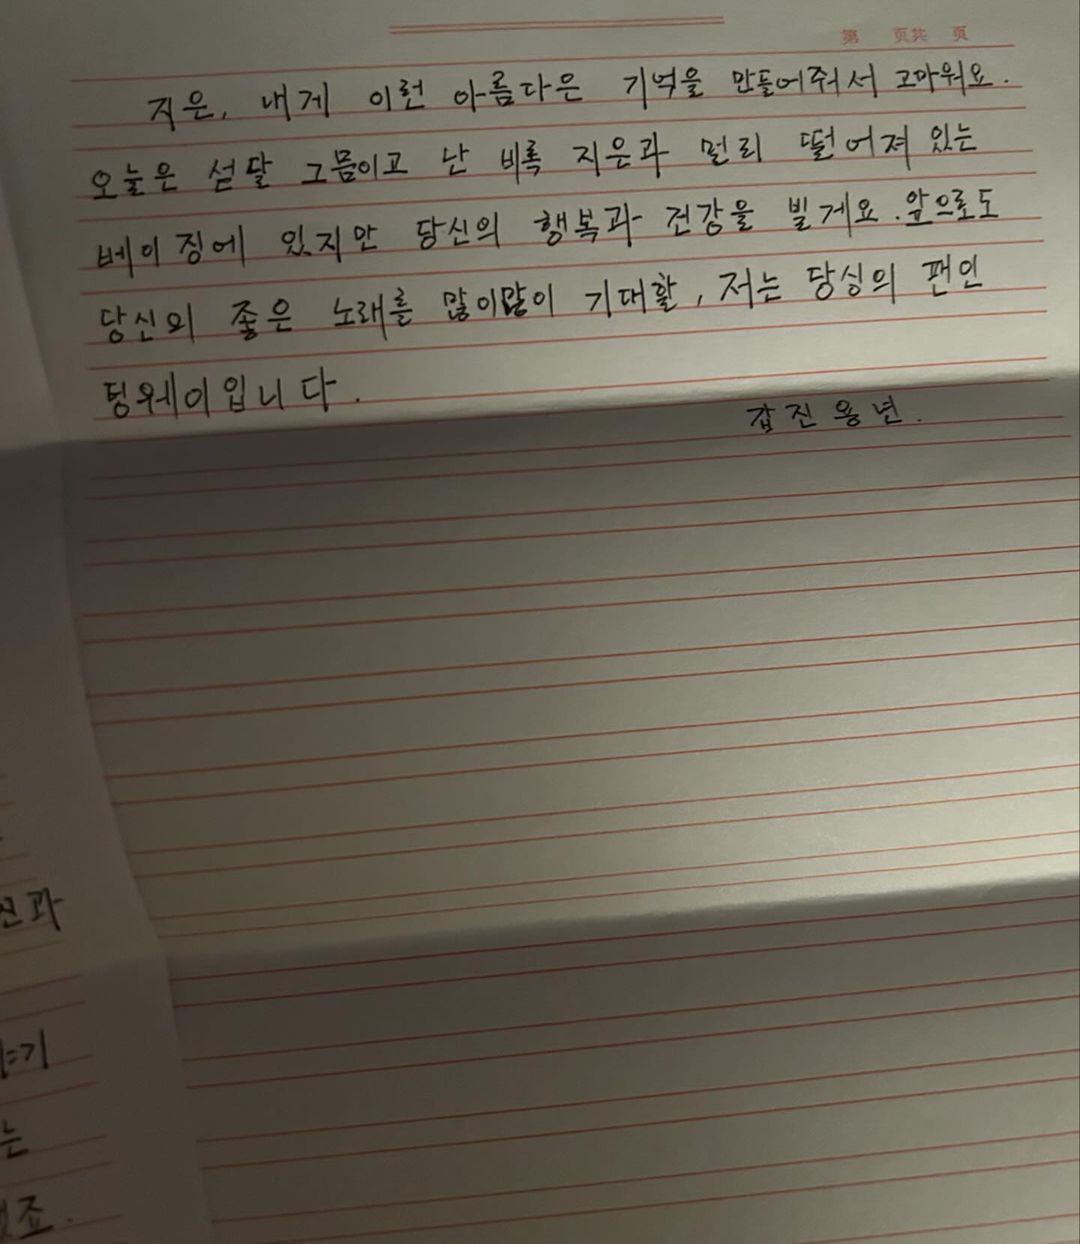 第 页共 页
지은, 내게 이런 아름다은 기억을 만들어줘서 고마워요.
오늘은 섣달 그믐이고 난 비록 지은과 멀리 떨어져 있는
베이징에 있지만 당신의 행복과 건강을 빌게요.앞으로도
당신의 좋은 노래를 많이많이 기대할, 저는 당싱의 팬인
덩웨이입니다.
갑진용년.
과
기
는
죠.